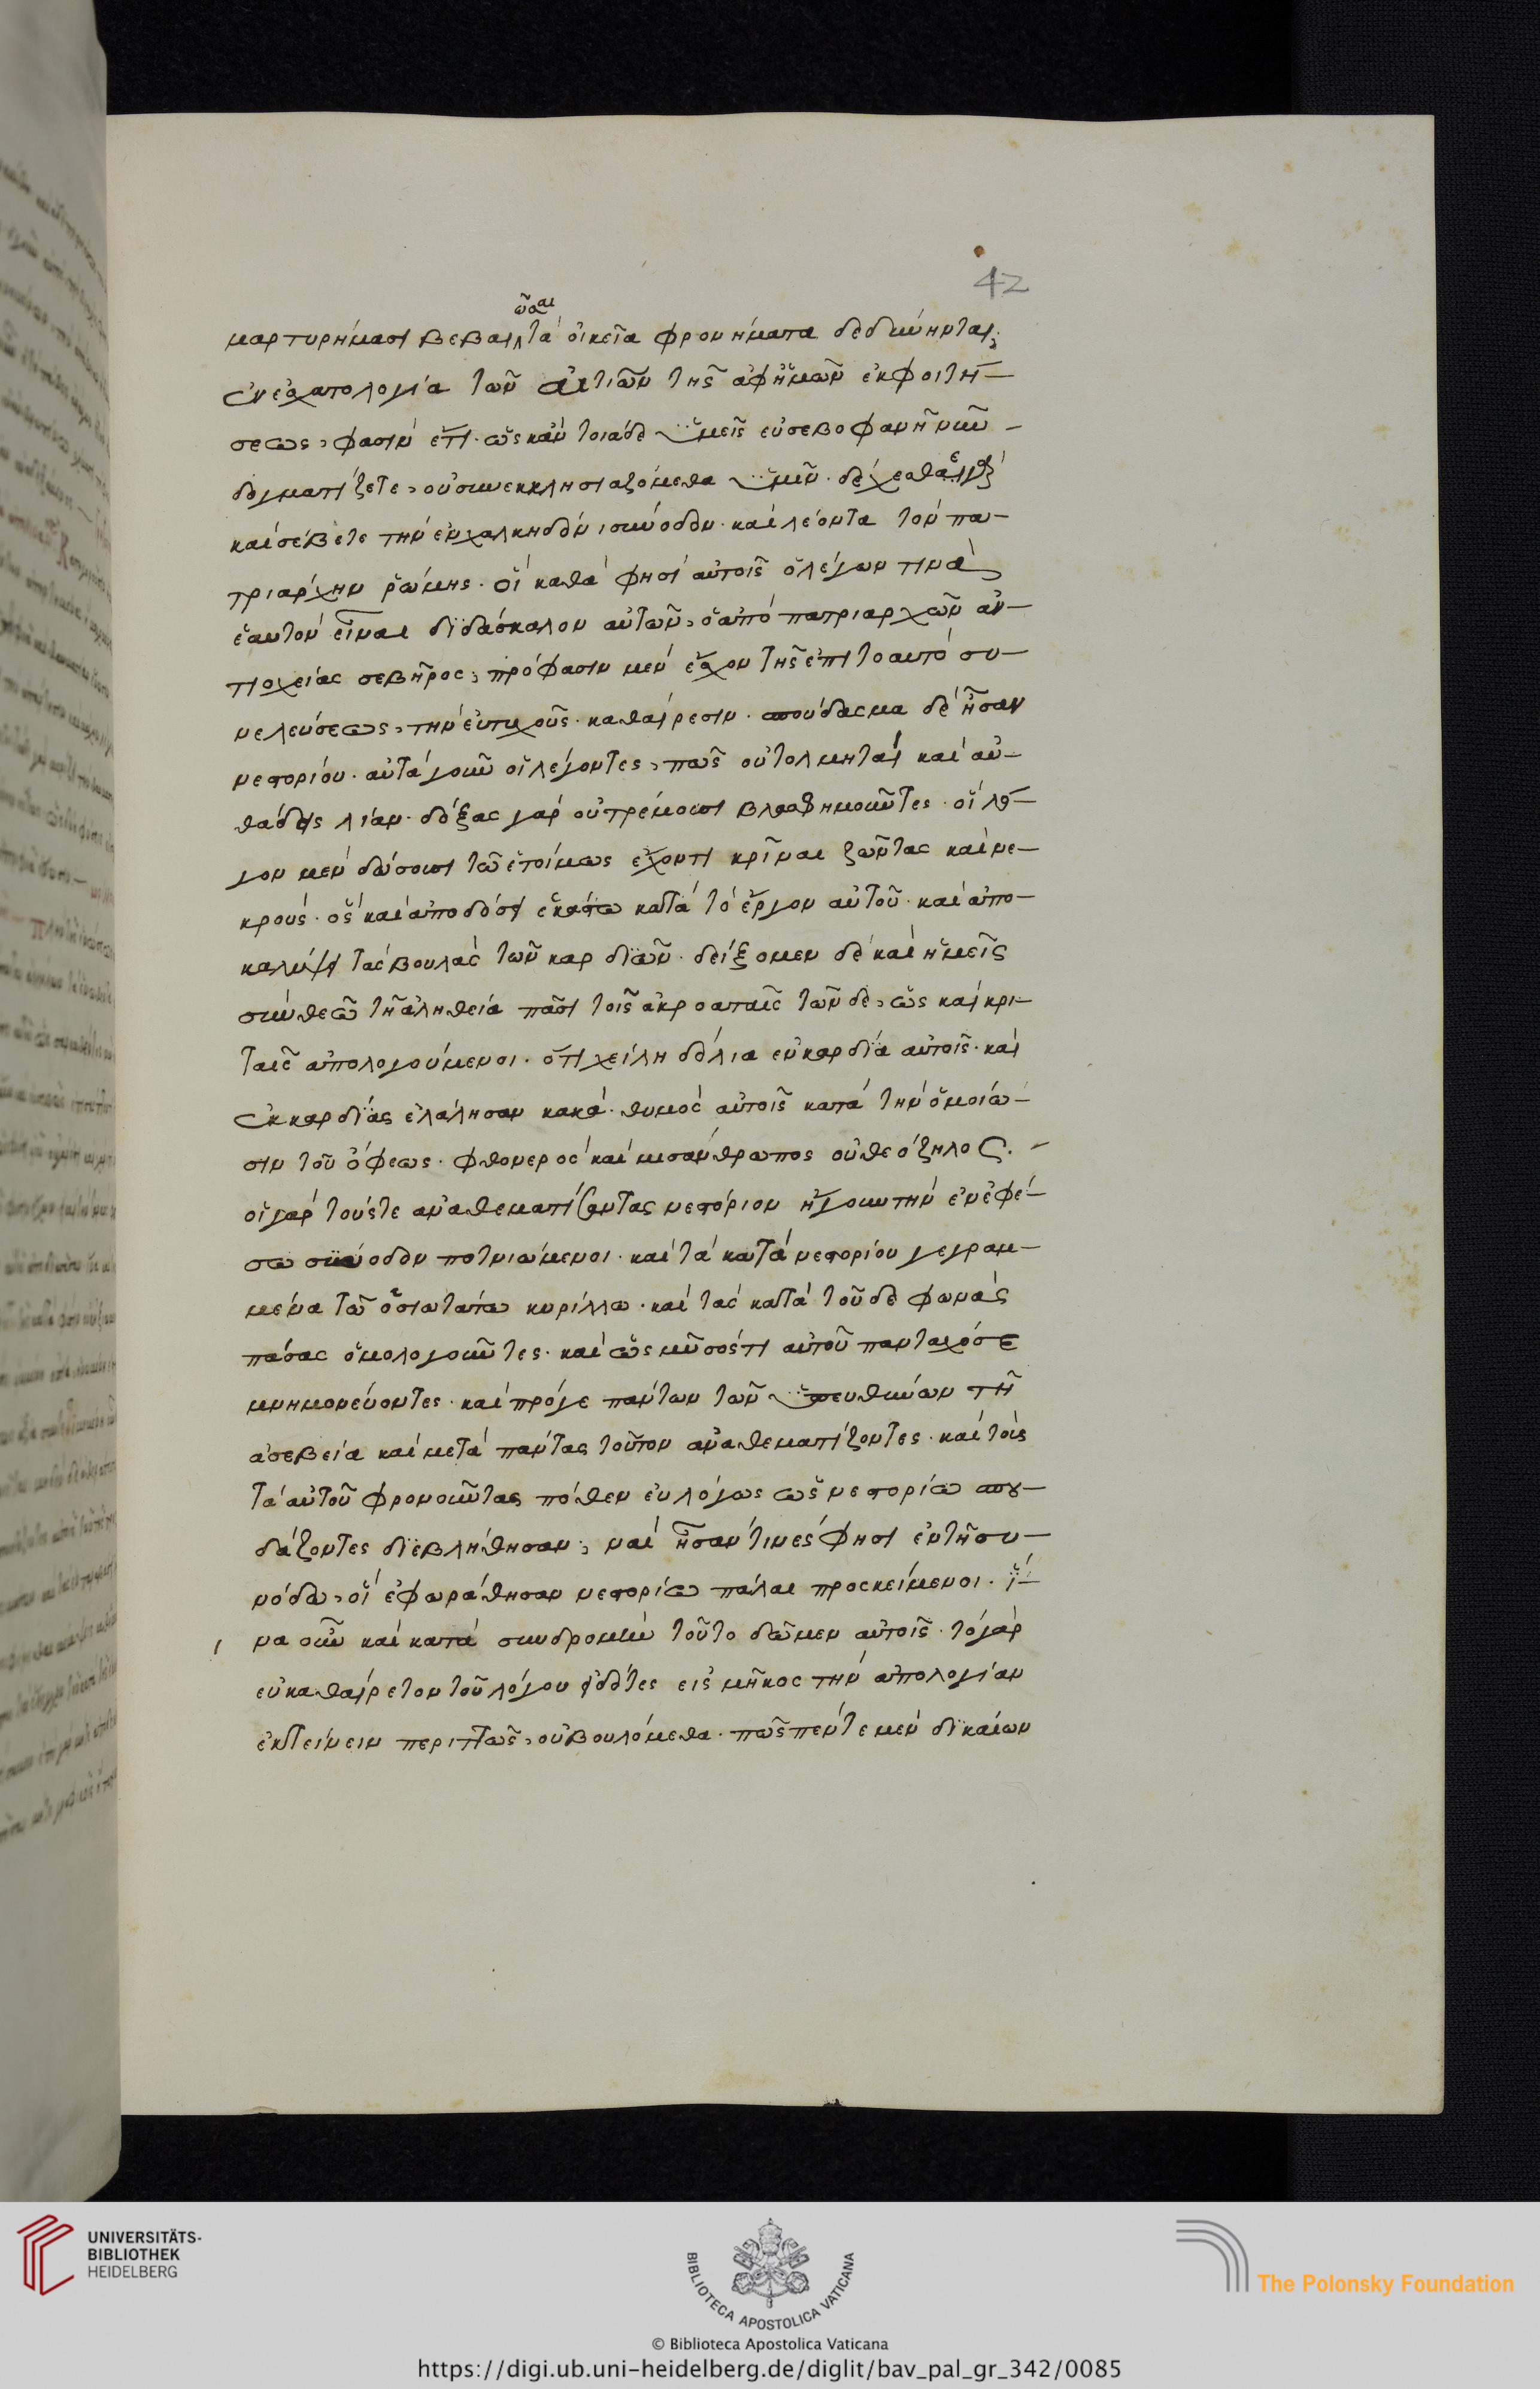 42
ῶσαι
μαρτυρήμασι βεβαι τὰ οἰκεῖα φρονήματα δεδύνηνται;
ἓν ἔχ ἀπολογία τῶν αἰτιῶν τῆς ἀφ ἡμῶν ἐκφοιτή-
σεως, φασὶν ἔτι. ὡς κἂν τοιάδε ὑμεῖς εὐσεβοφανῆ νῦν
δογματίζετε, οὐ συνεκκλησιαζόμεθα ὑμῖν. δέχεσθε γὰρ
καὶ σέβετε τὴν ἐν χαλκηδόνι σύνοδον. καὶ λέοντα τὸν πα-
τριάρχην ῥώμης. οἳ καθά φησι αὐτοῖς ὁ λέγων τινὰ
ἑαυτὸν εἶναι διδάσκαλον αὐτῶν, ὁ ἀπὸ πατριαρχῶν ἀν-
τιοχείας σεβῆρος, πρόφασιν μὲν ἔχον τῆς ἐπιτοαυτὸ συ-
νελεύσεως, τὴν εὐτυχοῦς. καθαίρεσιν. σπούδασμα δὲ ἦσαν
νεστορίου. αὐτὰ γοῦν οἱ λέγοντες, πῶς οὐ τολμηταὶ καὶ αὐ-
θάδεις λίαν. δόξας γὰρ οὐ τρέμουσι βλασφημοῦντες. οἳ λό-
γον μὲν δώσουσι τῶ ἑτοίμως ἔχοντι κρῖναι ζῶντας καὶ νε-
κρούς. ὃς καὶ ἀποδώσει ἑκάστω κατὰ τὸ ἔργον αὐτοῦ. καὶ ἀπο-
καλύψει τὰς βουλὰς τῶν καρδιῶν. δείξομεν δὲ καὶ ἡμεῖς
σὺν θεῶ τῆ ἀληθεία πᾶσι τοῖς ἀκροαταῖς τῶν δε, ὡς καὶ κρι-
ταῖς ἀπολογούμενοι. ὅτι χείλη δόλια ἐν καρδία αὐτοῖς. καὶ
ἐκ καρδίας ἐλάλησαν κακά. θυμὸς αὐτοῖς κατὰ τὴν ὁμοίω-
σιν τοῦ ὄφεως. φθονερὸς καὶ μισάνθρωπος οὐ θεόζηλος.
οἱ γὰρ τούς τε ἀναθεματίσαντας νεστόριον ἤγουν τὴν ἐν ἐφέ-
σω σύνοδον ποτνιώμενοι. καὶ τὰ κατὰ νεστορίου γεγραμ-
μένα τῶ ὁσιωτάτω κυρίλλω. καὶ τὰς κατὰ τοῦδε φωνὰς
πάσας ὁμολογοῦντες. καὶ ὡς μῦσός τι αὐτοῦ πανταχόσε
μνημονεύοντες. καὶ πρό γε πάντων τῶν ὑπευθύνων τῆ
ἀσεβεία καὶ μετὰ πάντας τοῦτον ἀναθεματίζοντες. καὶ τοὺς
τὰ αὐτοῦ φρονοῦντας πόθεν εὐλόγως ὡς νεστορίω σπου-
δάζοντες διεβλήθησαν; ναὶ ἦσαν τινές φησι ἐν τῆ συ-
νόδω, οἳ ἐφωράθησαν νεστορίω πάλαι προσκείμενοι. ἵ-
να οὖν καὶ κατὰ συνδρομὴν τοῦτο δῶμεν αὐτοῖς. τὸ γὰρ
εὐκαθαίρετον τοῦ λόγου εἰδότες εἰς μῆκος τὴν ἀπολογίαν
ἐκτείνειν περιττῶς, οὐ βουλόμεθα. πῶς πέντε μὲν δικαίων
UNIVERSITÄTS-
BIBLIOTHEK
HEIDELBERG
BIBLIOTECA APOSTOLICA VATICANA
The Polonsky Foundation
© Biblioteca Apostolica Vaticana
https://digi.ub.uni-heidelberg.de/diglit/bav_pal_gr_342/0085